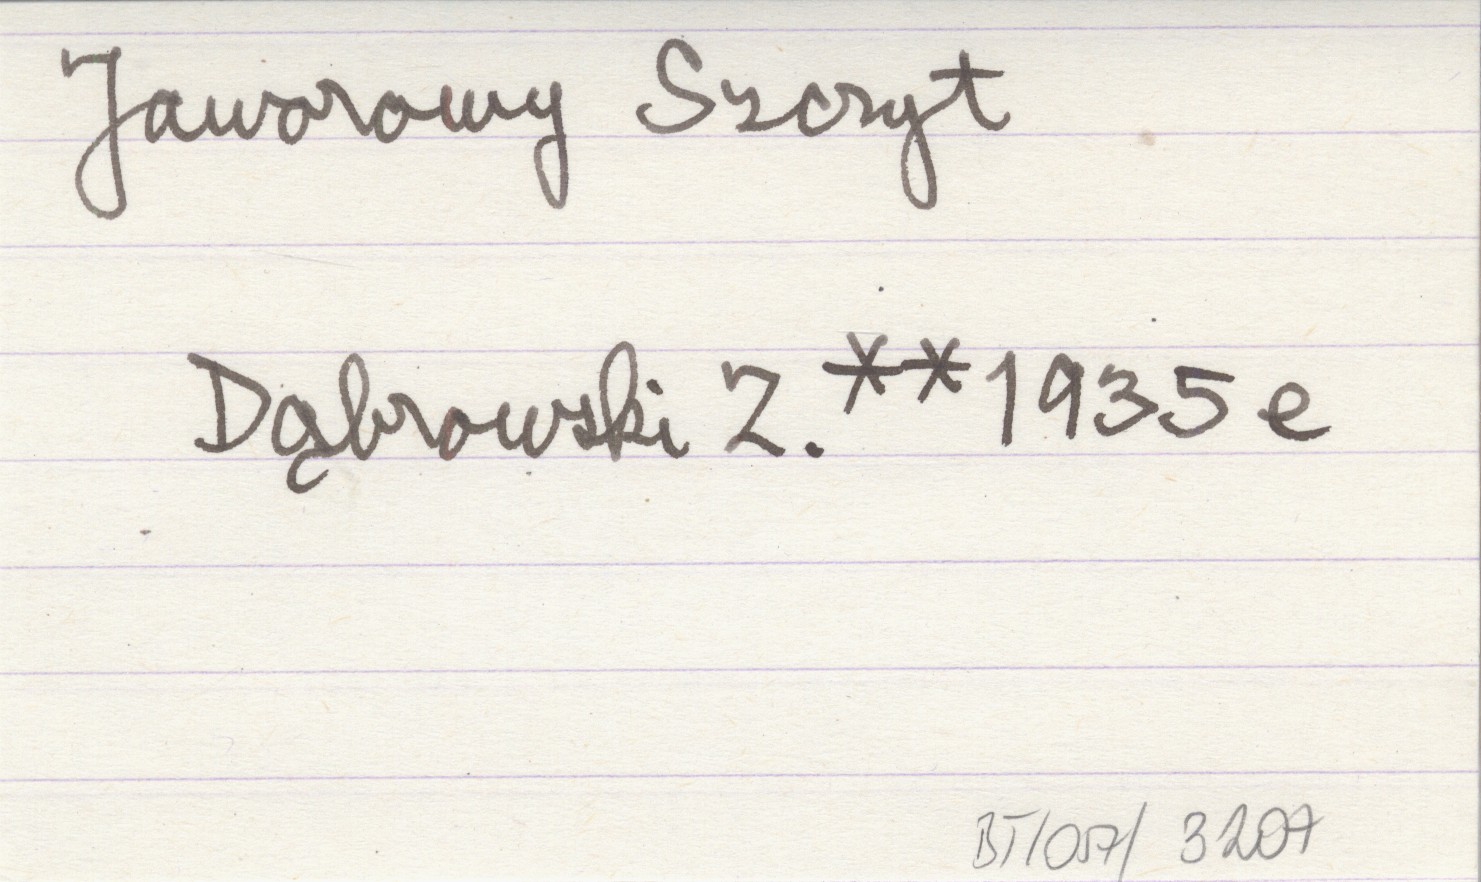 Jaworowy Szczyt
Dąbrowski Z.** 1935 e
BT/057/ 3207